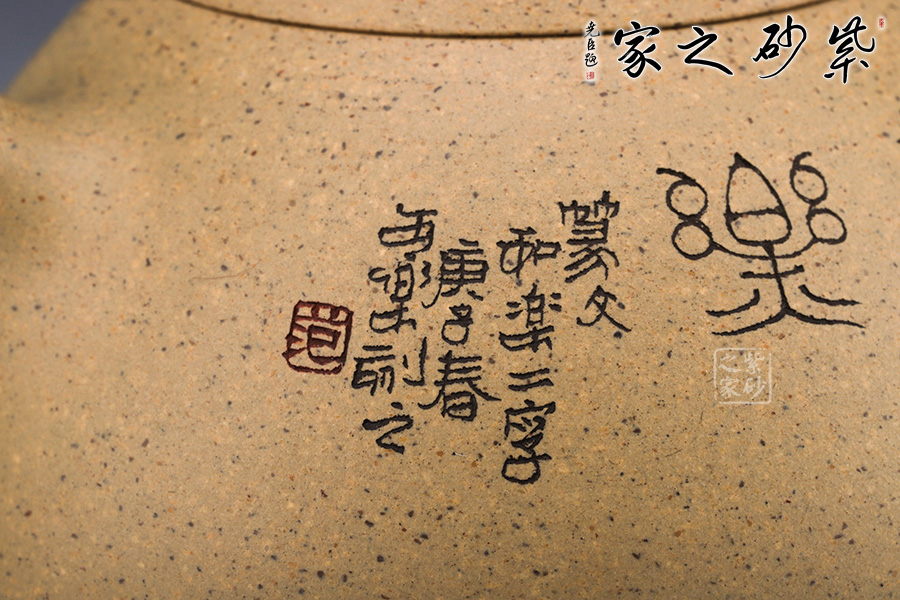 紫砂之家
樂
篆文
和樂二字
庚子春
樂刻之
范
紫砂之家